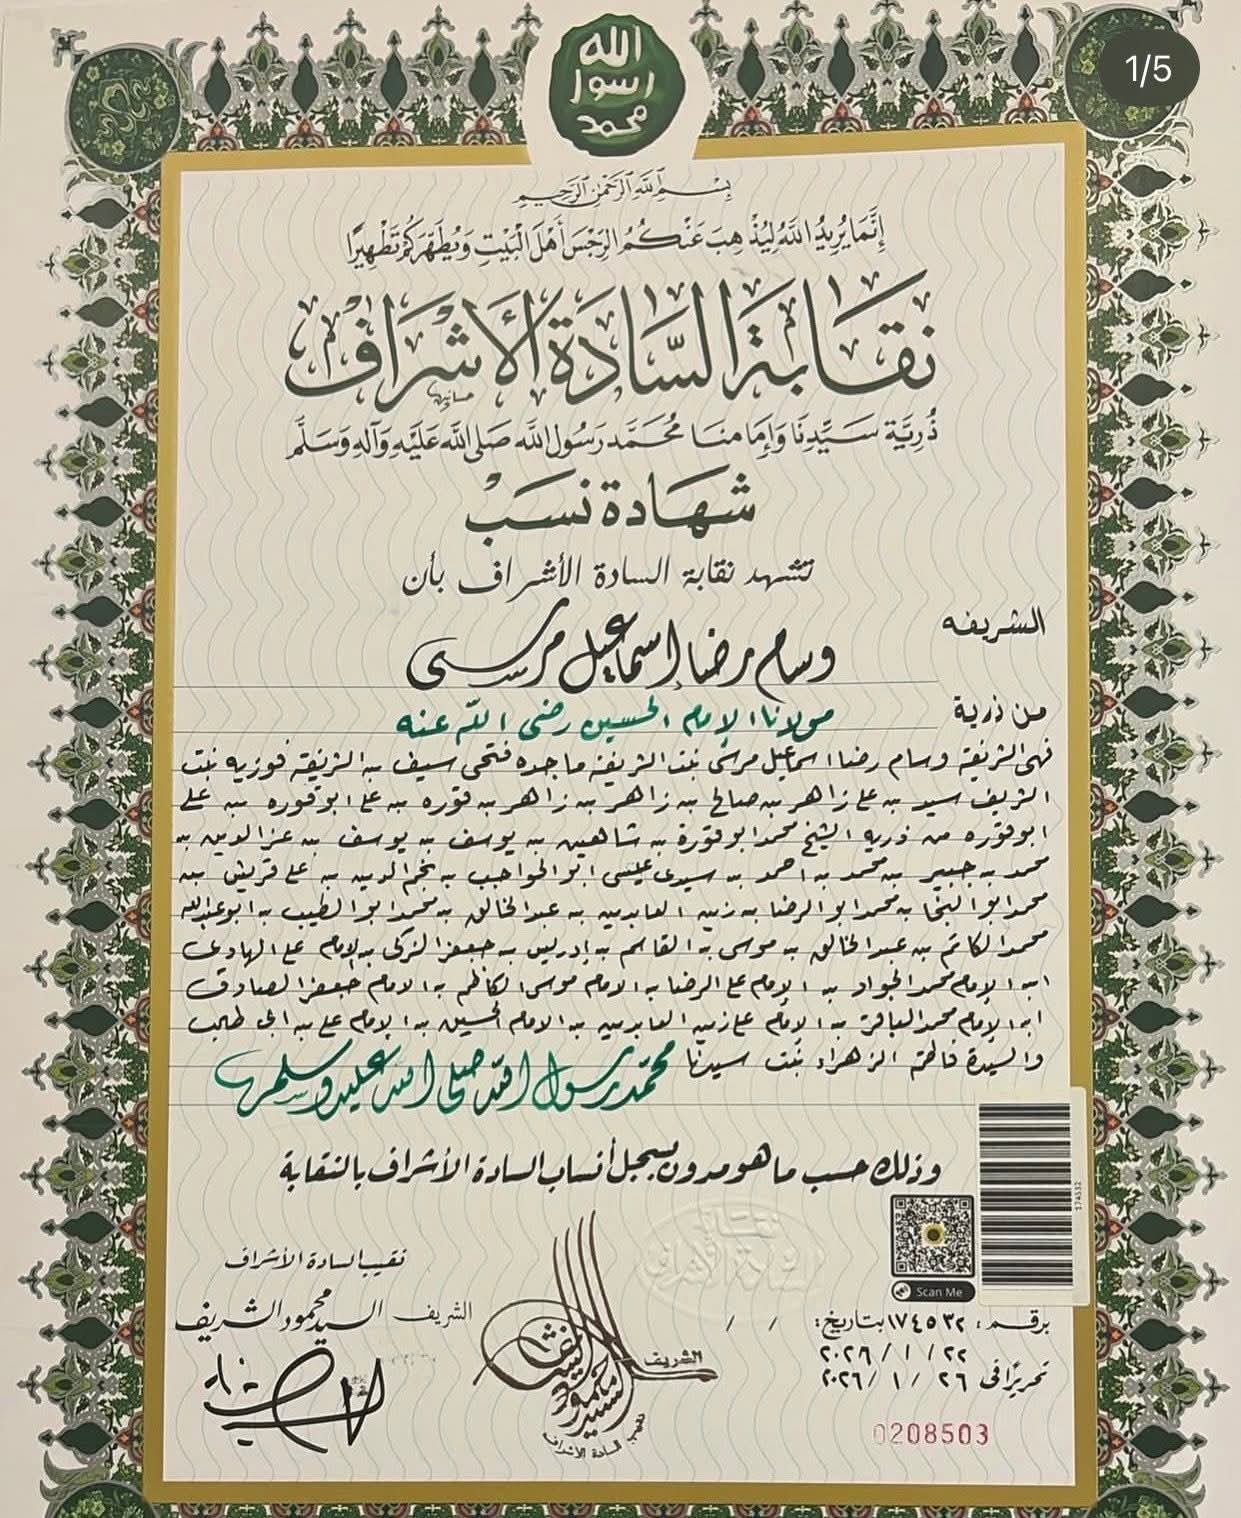 1/5
الله
رسول
محمد
بِسْمِ اللَّهِ الرَّحْمَنِ الرَّحِيمِ
إِنَّمَا يُرِيدُ اللَّهُ لِيُذْهِبَ عَنْكُمُ الرِّجْسَ أَهْلَ الْبَيْتِ وَيُطَهِّرَكُمْ تَطْهِيرًا
نقابة السادة الأشراف
ذُرِّيَّة سَيِّدِنَا وَإِمَامِنَا مُحَمَّد رَسُول اللَّه صَلَّى اللَّه عَلَيْهِ وَآلِهِ وَسَلَّم
شهادة نسب
تشهد نقابة السادة الأشراف بأن
الشريفه
وسام رضا إسماعيل مرسى
من ذرية
مولانا الإمام الحسين رضى الله عنه
فهى الشريفة وسام رضا اسماعيل مرسى بنت الشريفة ماجده فتحى سيف بنه الشريفة فوزيه بنت
الشريف سيد بن على زاهر بن صالح بن زاهر بن زاهر بن قوره بن على ابوقوره بن على
ابوقوره من ذرية الشيخ محمد ابوقورة بن شاهين بن يوسف بن يوسف بن عز الدين بن
محمد بن جبير بن محمد بن احمد بن سيدى عيسى ابو الحواجب بن نجم الدين بن على قريش بن
محمد ابو النجا بن محمد ابو الرضا بن زين العابدين بن عبد الخالق بن محمد ابو الطيب بن ابو عبدالله
محمد الكاتم بن عبد الخالق بن موسى بن القاسم بن إدريس بن جعفر الزكى بن الإمام على الهادى
ابن الإمام محمد الجواد بن الإمام على الرضا بن الامام موسى الكاظم بن الامام جعفر الصادق
ابن الإمام محمد الباقر بن الإمام على زين العابدين بن الامام الحسين بن الإمام على بن ابى طالب
والسيدة فاطمة الزهراء بنت سيدنا محمد رسول الله صلى الله عليه وسلم
وذلك حسب ما هو مدون بسجل أنساب السادة الأشراف بالنقابة
174532
Scan Me
نقيب السادة الأشراف
الشريف السيد محمود الشريف
الشريف
السيد محمود
نقيب السادة الأشراف
نقابة السادة الأشراف
برقم: ١٧٤٥٣٢ بتاريخ: / /
٢٠٢٦/١/٢٢
تحريرًا فى ٢٦ /١/ ٢٠٢٦
0208503